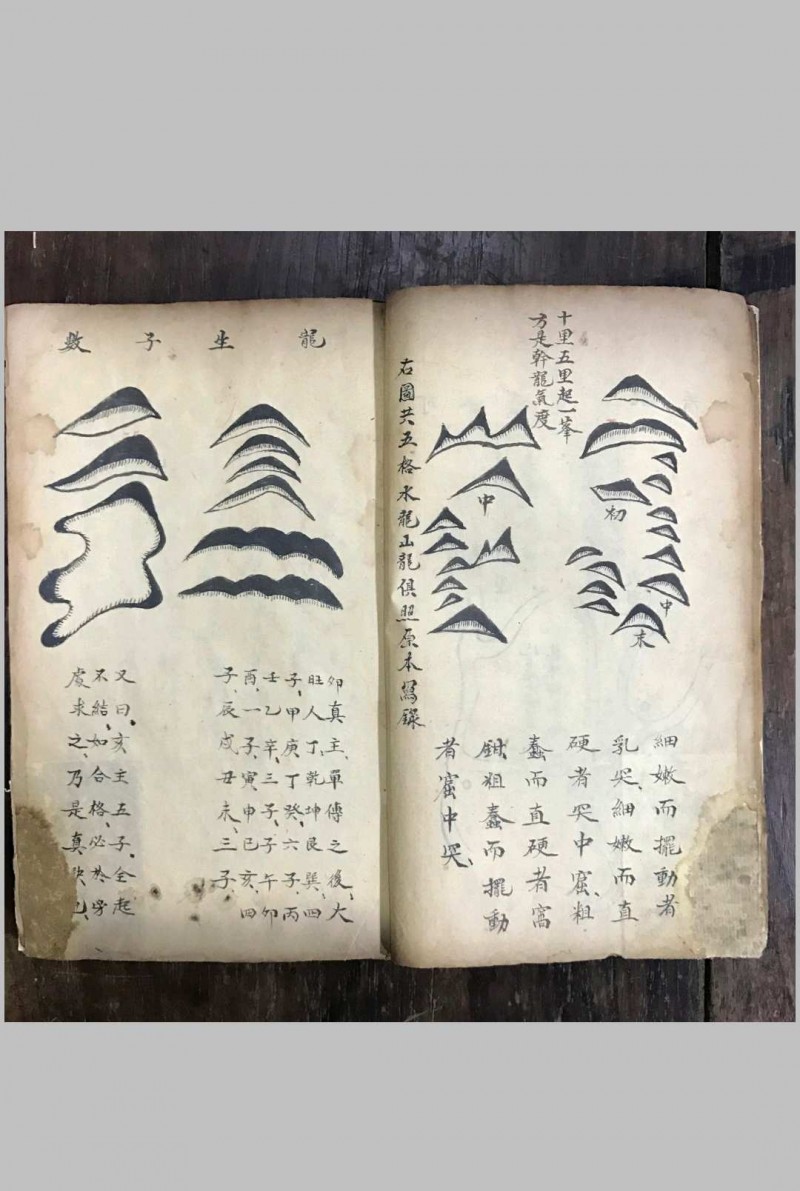 十里五里起一峯
方是幹龍氣度
初
中
末
中
細嫩而擺動者
乳突、細嫩而直
硬者突中窟、粗
蠢而直硬者窩
鉗、粗蠢而擺動
者窟中突、
右圖共五格水龍山龍俱照原本寫錄
龍生子數
卯真主單傳之後、大
旺人丁、乾坤艮巽、四
子、甲庚丁癸、六子、丙
壬乙辛、三子、子午卯
酉、一子、寅申巳亥、四
子、辰戌丑未、三子、
又曰、亥主五子、全起
不結、如合格、必於旁
處求之、乃是真訣也、